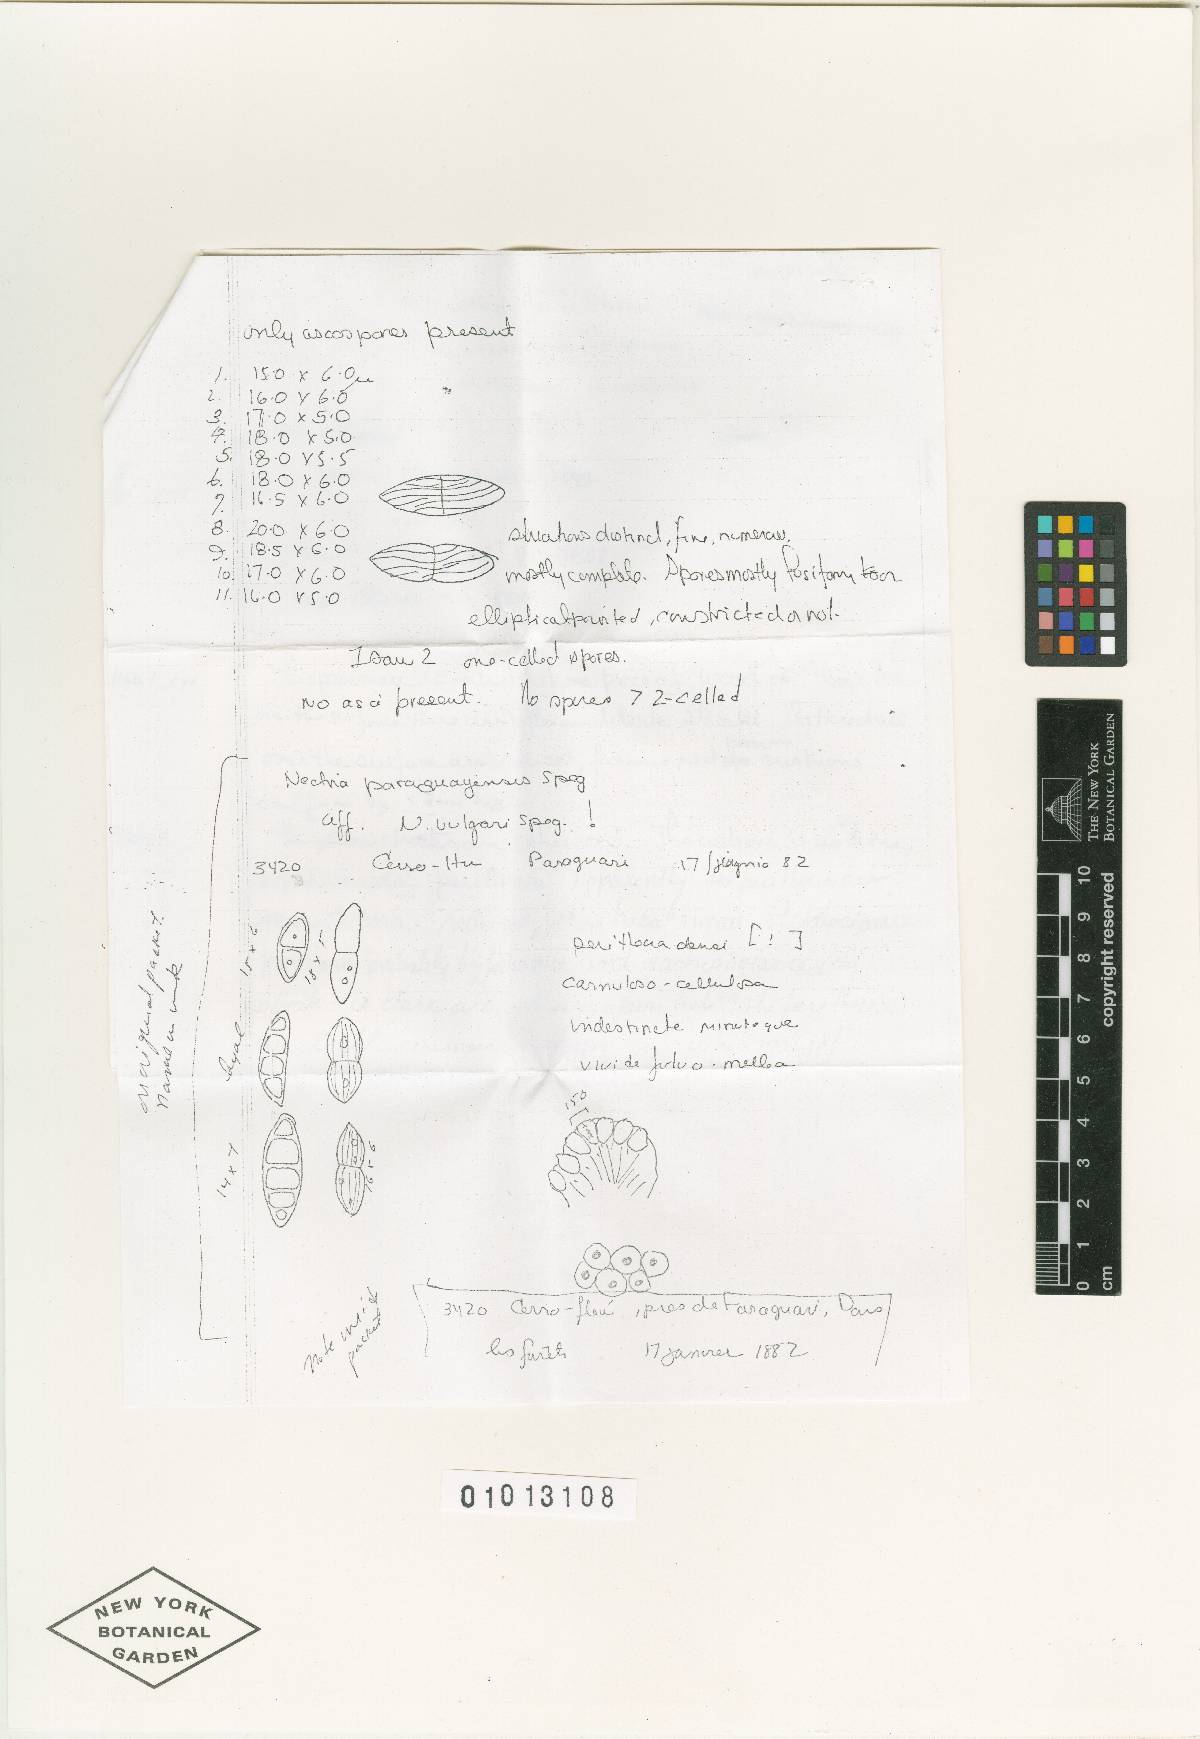 only ascospores present
1. 15.0 x 6.0 u
2. 16.0 x 6.0
3. 17.0 x 5.0
4. 18.0 x 5.0
5. 18.0 x 5.5
6. 18.0 x 6.0
7. 16.5 x 6.0
8. 20.0 x 6.0
9. 18.5 x 6.0
10. 17.0 x 6.0
11. 16.0 x 5.0
striations distinct, fine, numerous.
mostly complete. Spores mostly fusiform to or
elliptical pointed, constricted or not.
I saw 2 one-celled spores.
No asci present. No spores > 2-celled
Nectria paraguayensis Speg
aff. N. vulgari Speg. !
3420 Cerro-Hu Paraguari 17/ 82
[!]
carnuloso-cellulosa
indestincte minuteque
vivide fulvo-mellea
15 x 6
18 x 5
hyal
14 x 7
16 - 6
150
on original packet.
Note inside packet
3420 Cerro- , pres de Paraguari, Dans
les forêts 17 janvier 1882
01013108
NEW YORK
BOTANICAL
GARDEN
THE NEW YORK
BOTANICAL GARDEN
copyright reserved
10 9 8 7 6 5 4 3 2 1 0
cm